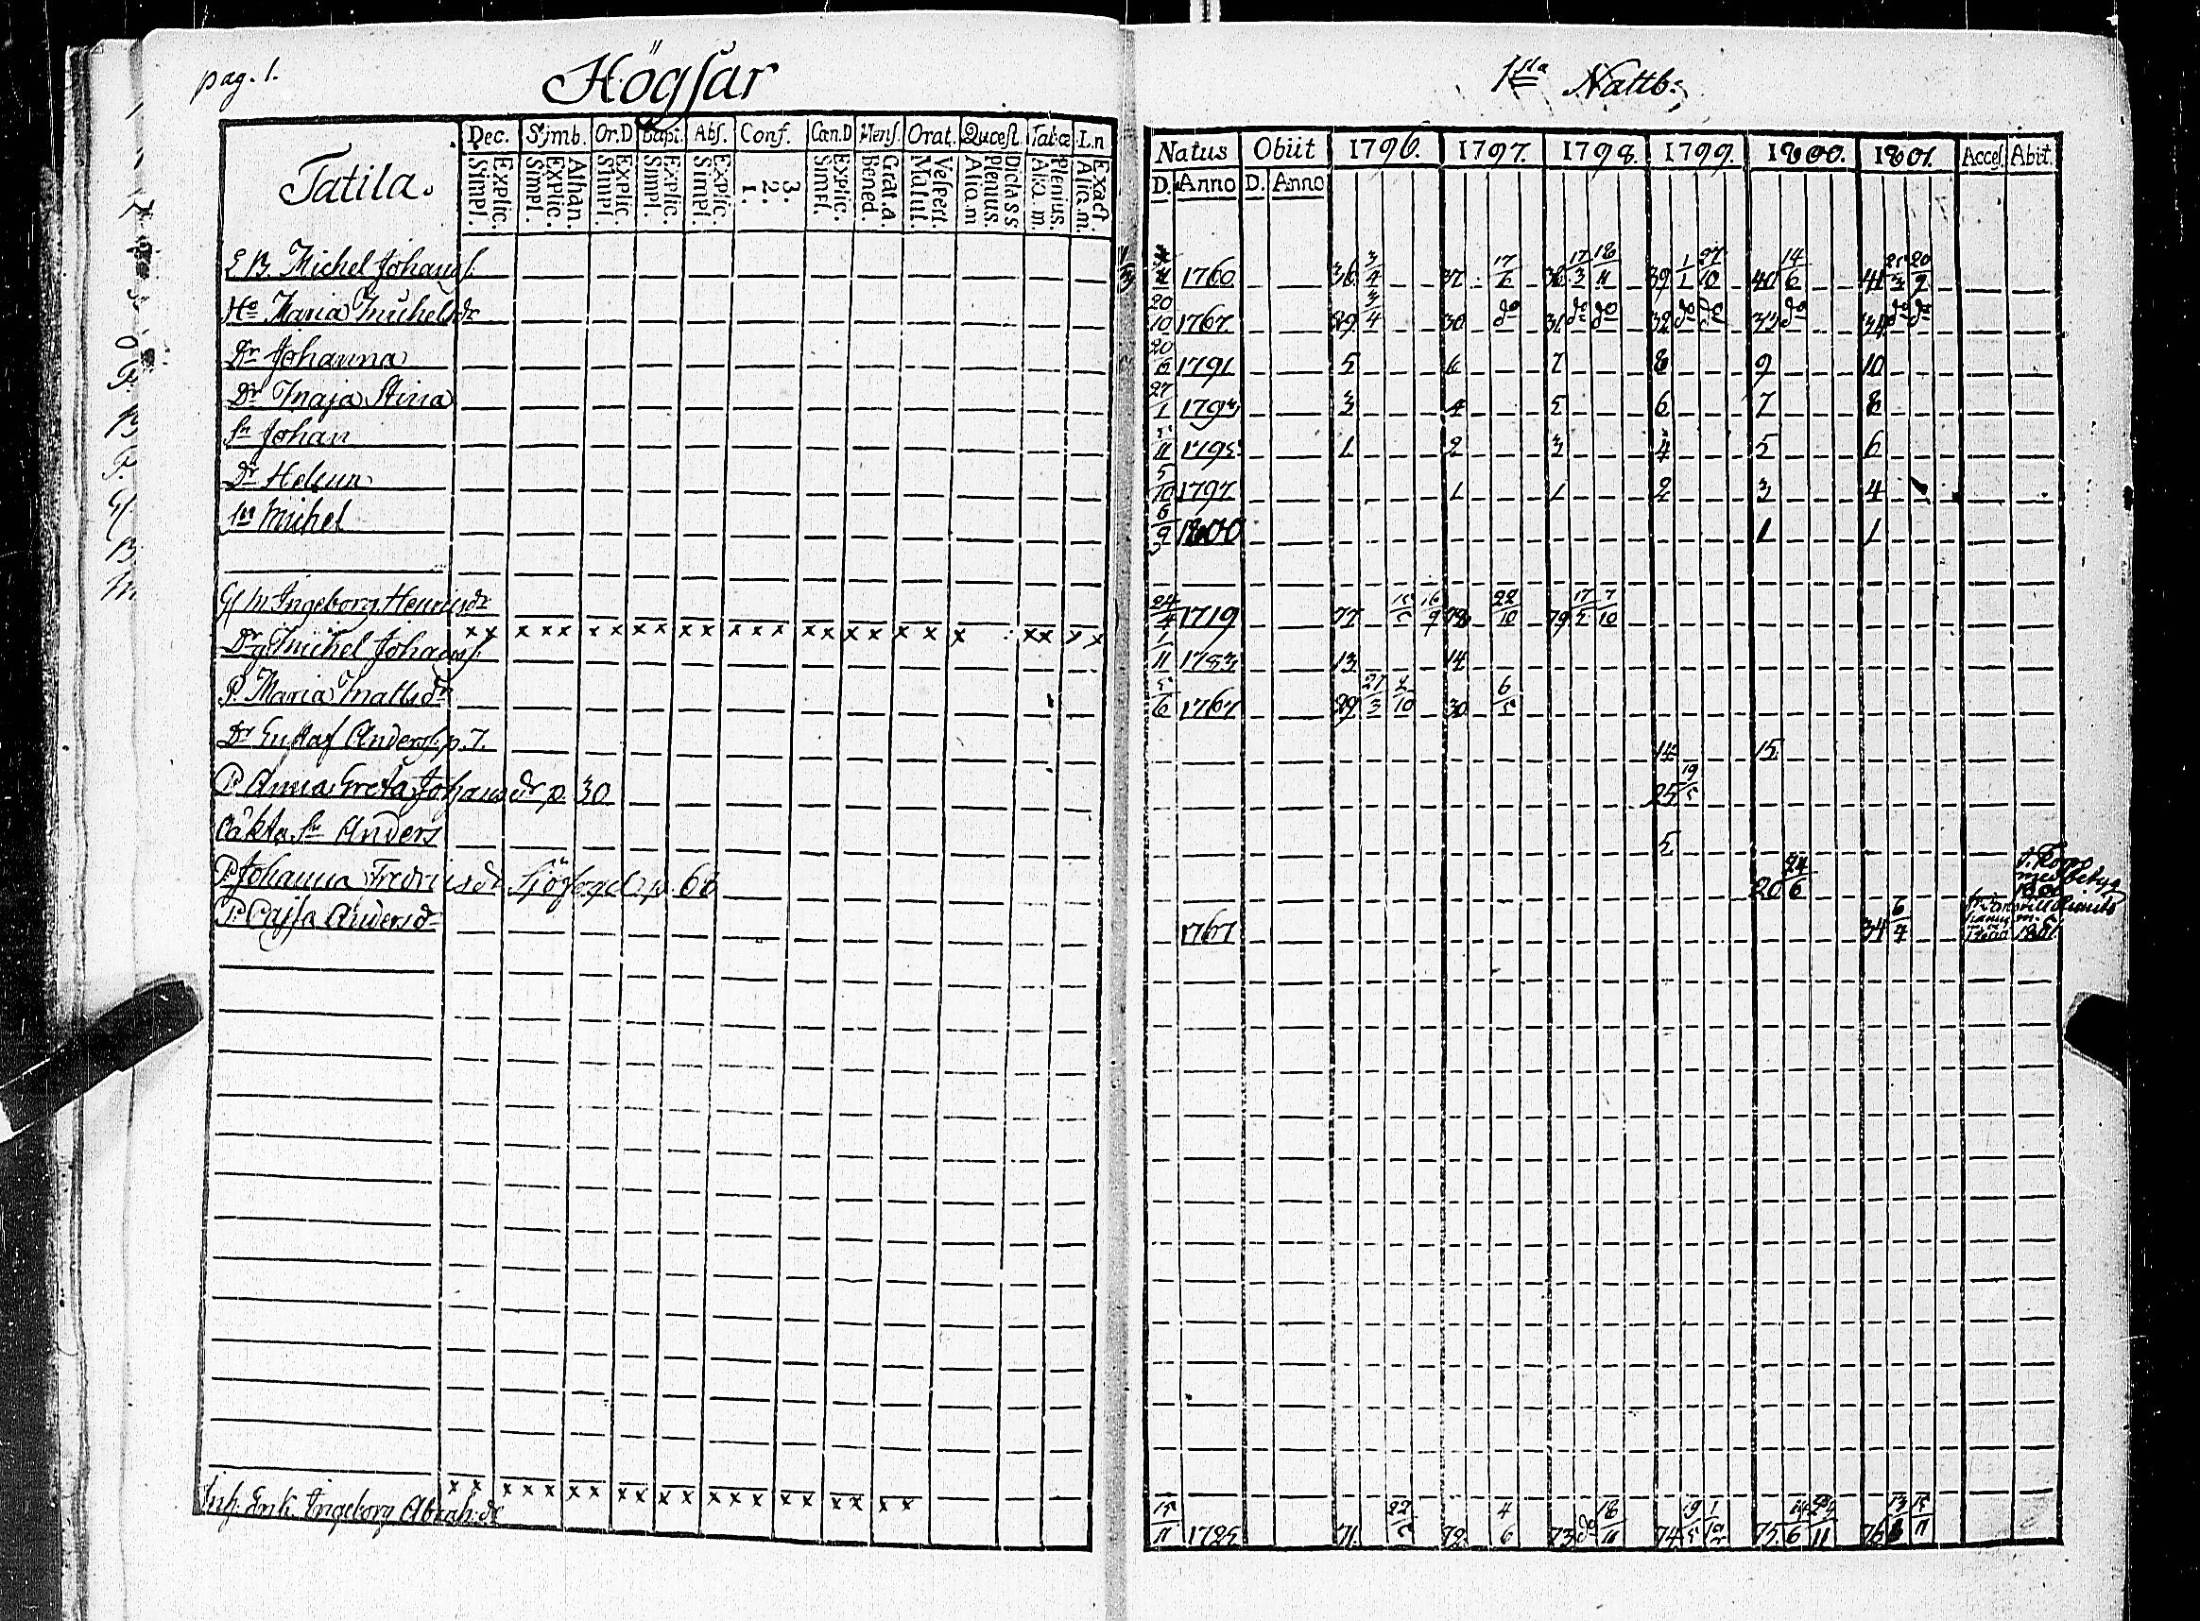 pag. 1. Högsar 1sta Nattb:
Tatila. Dec. Sijmb. Or.D Bapt. Abs. Conf. Cœn.D Mens. Orat. Quæst. Tabæ Ln
Simpl. Explic. Simpl. Explic. Athan. Simpl. Explic. Simpl. Explic. Simpl. Explic. 1. 2. 3. Simpl. Explic. Bened. Grat.a. Matut. Vespert. Aliq.m Plenius. Dicta s s Aliq.m. Plenius. Aliq.m. Exact.
Natus Obiit 1796. 1797. 1798. 1799. 1800. 1801. Acces. Abit.
D. Anno D. Anno
E B. Michel Johans. 1760 36 3/4 37 17/6 38 17/3 18/11 39 1/1 27/10 40 14/6 41
Ho Maria Michelsdr 20/10 1767 29 3/4 30 do 31 do do 32 do do 33 do 34 do do
Dr Johanna 20/6 1791 5 6 7 8 9 10
Dr Maja Stina 27/1 1793 3 4 5 6 7 8
Sn Johan 5/11 1795 1 2 3 4 5 6
Dr Helena 5/10 1797 1 1 2 3 4
Sn Michel 6/9 1800 1 1
Gl M Ingeborg Henricsdr 24/4 1719 77 15/5 16/9 78 22/10 79 17/5 7/10
x x x x x x x x x x x x x x x x x x x x x x x x x
Drg Michel Johans. 1/11 1783 13 14
P. Maria Mattsdr 5/6 1767 29 27/3 2/10 30 6/5
Dr Gustaf Anders. p. 7. 14 15
P. Anna Greta Johansdr p. 30 25 19/5
Oäkta Sn Anders 5
P Johanna Fredricsdr Sjöfogel p. 68 20 24/6
P. Cajsa Andersdr 1767 34 6/4
x x x x x x x x x x x x x x x x x x x x
Inh. Enk. Ingeborg Abrah:dr 15/11 1725 71 22/5 72 4/6 73 do 18/11 74 19/5 75 14/6 76 15/11